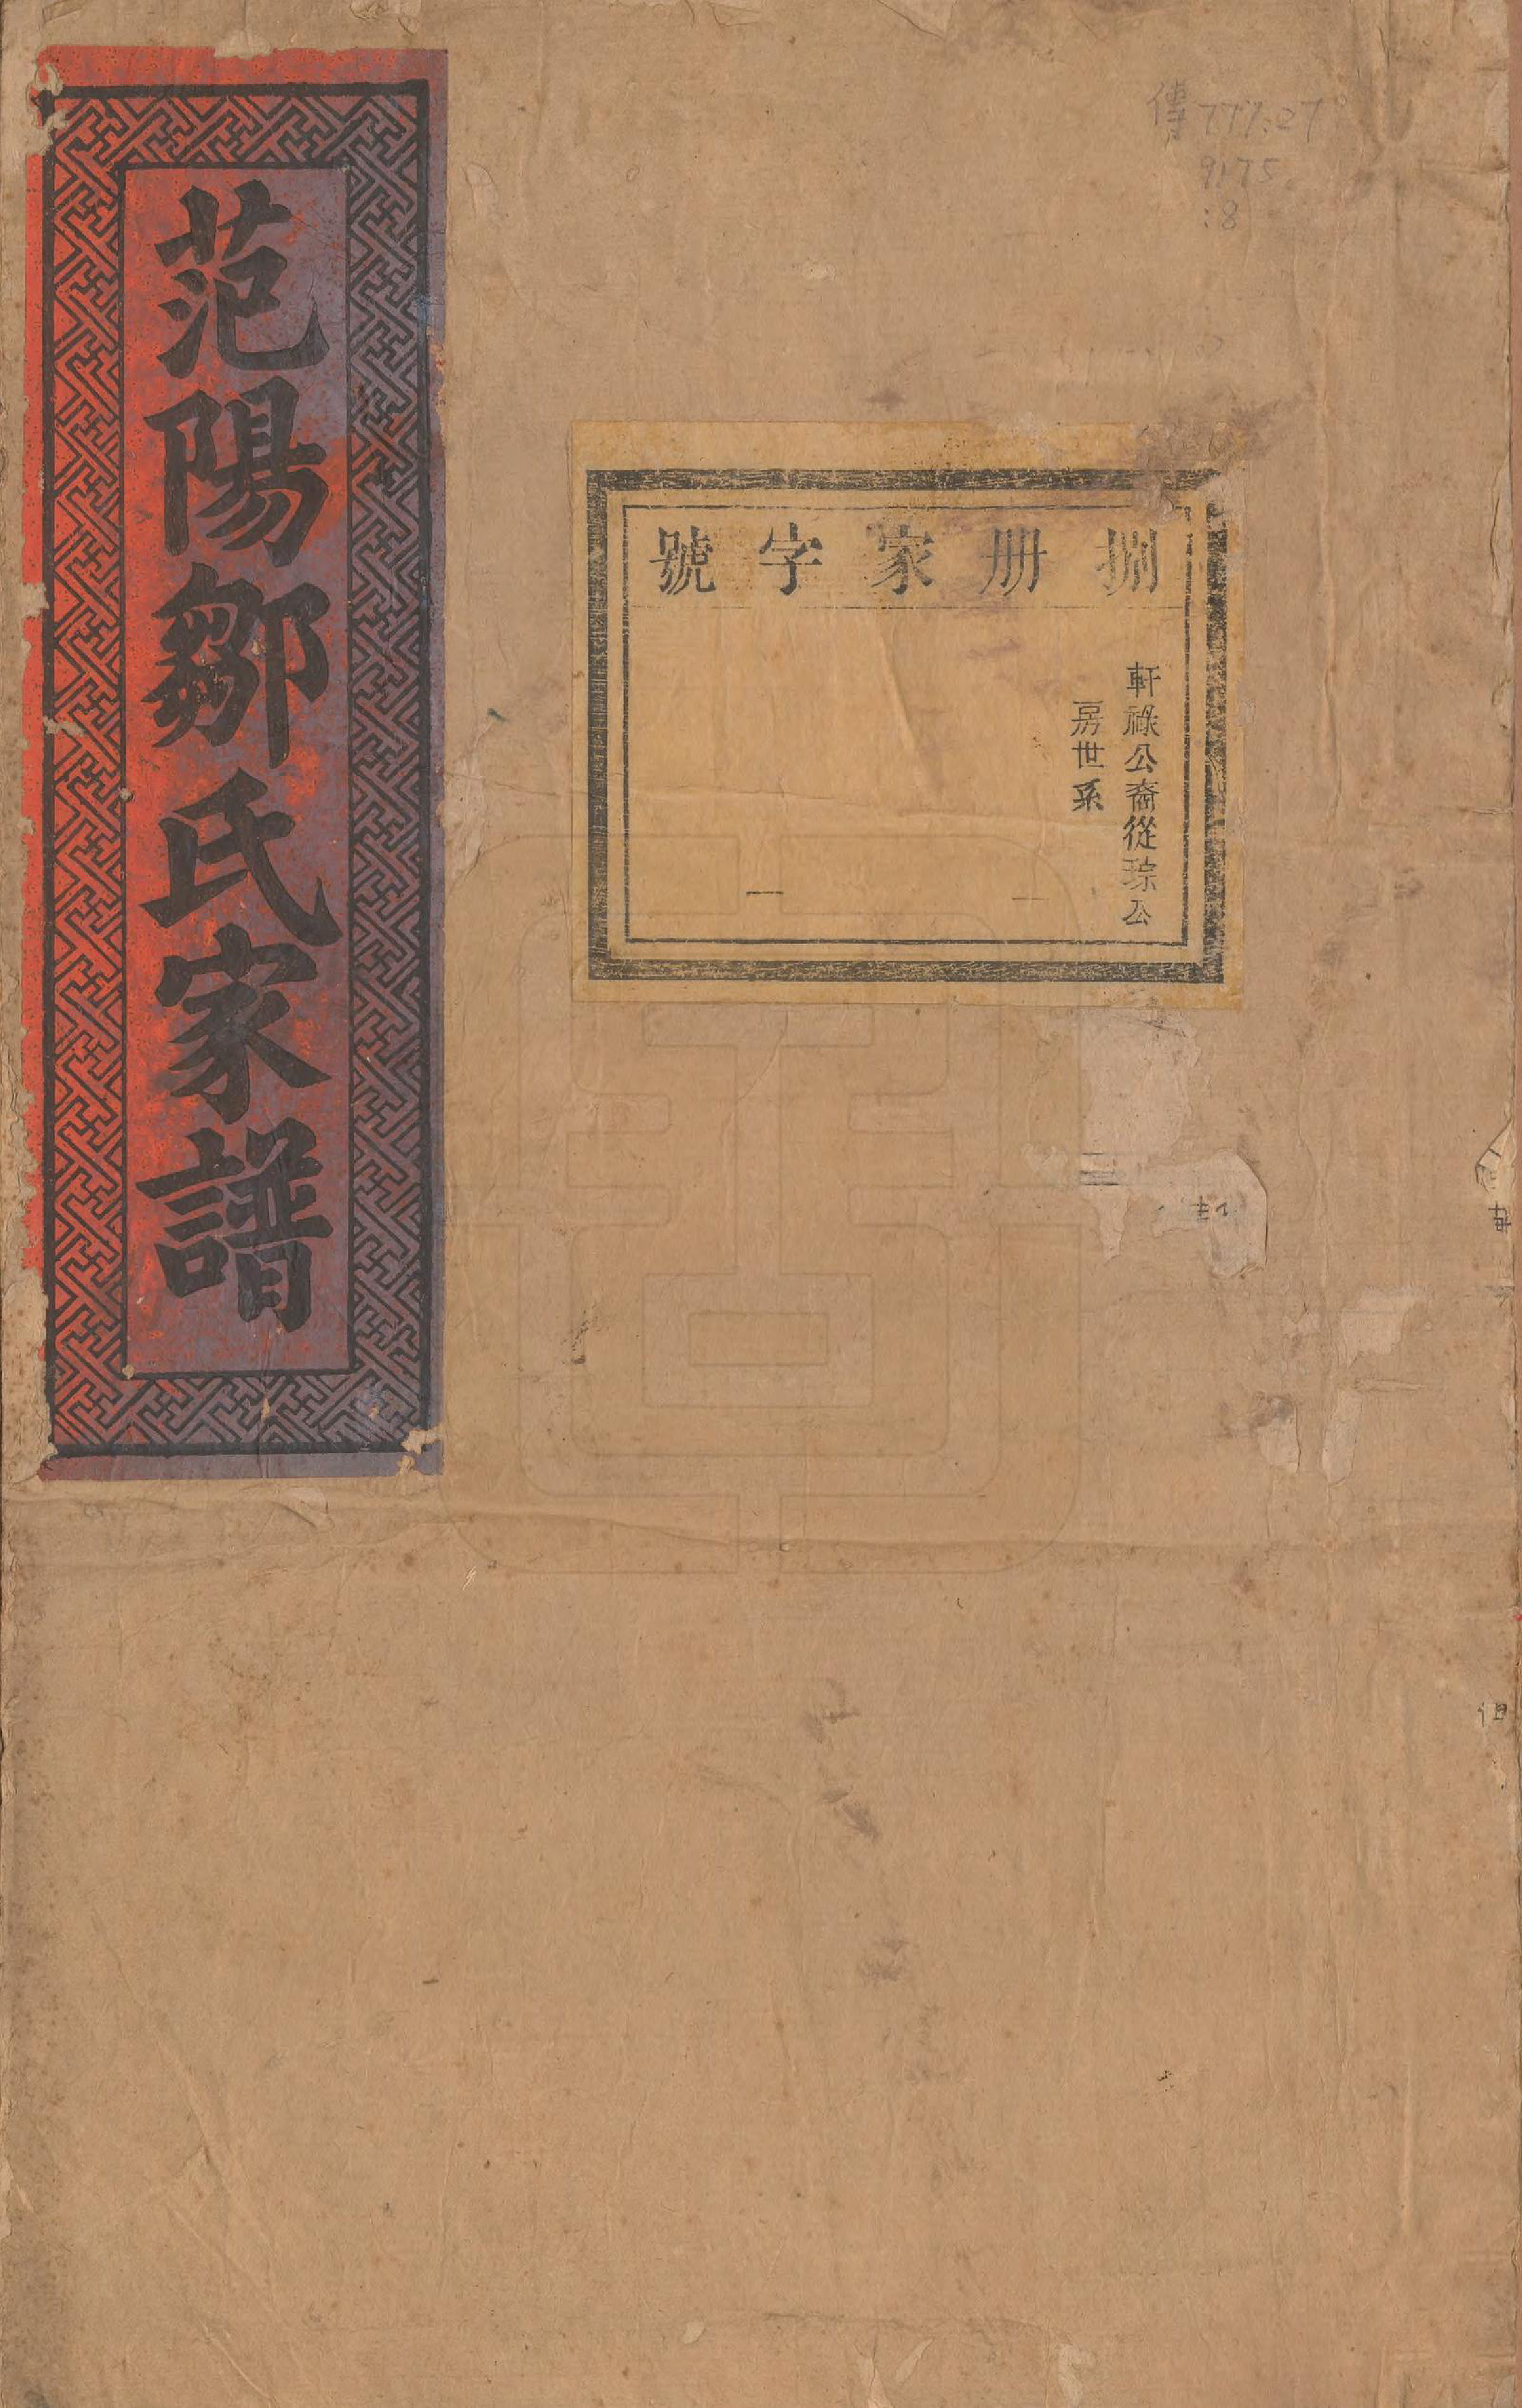 范陽鄒氏家譜
捌册家字號
軒祿公裔從琮公
房世系
傳777.27
9175
:8